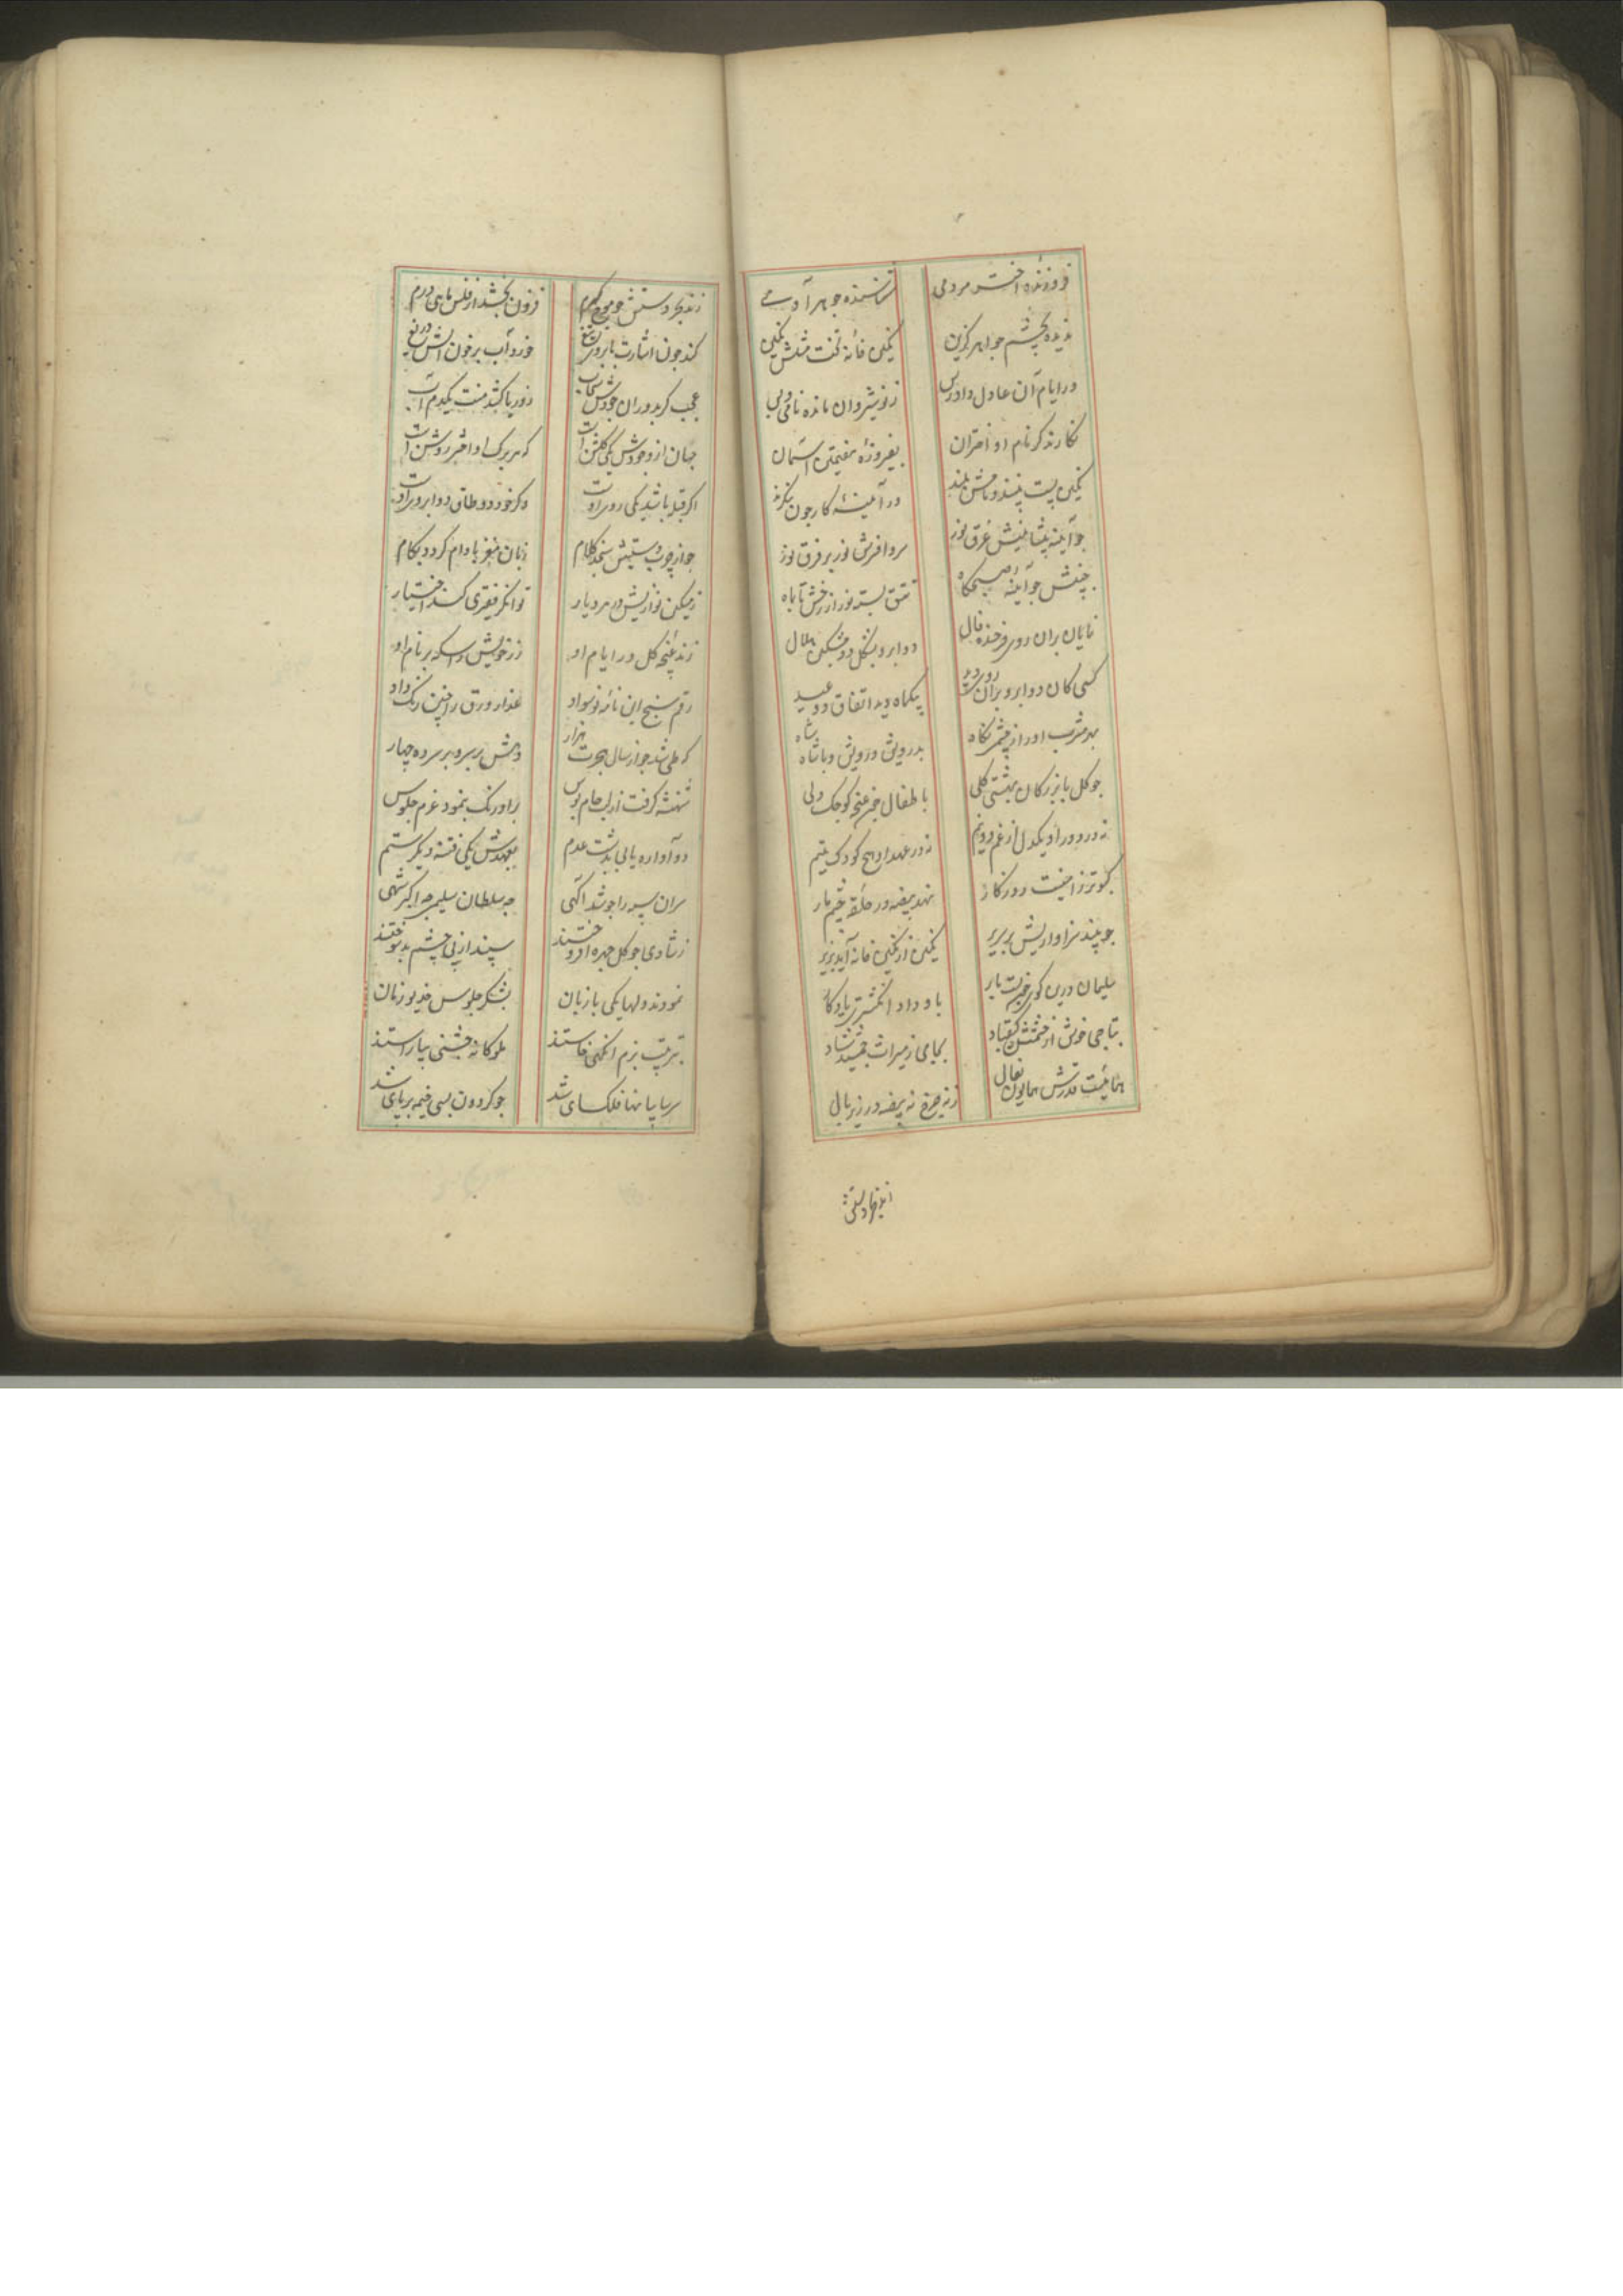 فروزندهٔ اختر مردمی
شناسندهٔ جوهر آدمی
ندیده بچشم جواهر گزین
نگین خانه تخت مثلش نگین
در ایام آن عادل دادرس
ز نوشیروان مانده نامی و بس
نگارند گر نام او اختران
بفیروزهٔ هفتمین آسمان
نگین پست بینند و نامش بلند
در آیینهٔ کار چون بنگرند
چو آیینه پیشانیش غرق نور
سر و افسرش نور بر فرق نور
جبینش چو آیینهٔ صبحگاه
تتق بسته نور از رخش تا بماه
نمایان بران روی فرخنده فال
دو ابرو بشکل دو مشکین هلال
کسی کان دو ابرو بران روی دید
بیکماه دید اتفاق دو عید
بدرویش درویش و با شاه شاه
چو گل با بزرگان بهشتی گلی
با طفال چون غنچه کوچک دلی
نه در دور او یکدل از غم دو نیم
نه در عهد او هیچ کودک یتیم
کبوتر ز امنیت روزگار
نهد بیضه در حلقهٔ چشم مار
چو بیند سزاواریش بر سریر
نگین از نگین خانه آید بزیر
سلیمان درین کوی چون بست بار
باو داد انگشتری یادگار
بتاجی خوش از حشمتش کیقباد
بجامی ز میراث جمشید شاد
همائیست قدرش همایون فعال
ز نه چرخ نه بیضه در زیر بال
زند بحر دستش چو موج کرم
فزون بخشد از فلس ماهی درم
کند چون اشارت بابروی تیغ
خورد آب بر خون آتش دریغ
عجب گر بدوران جودش سحاب
ز دریا کشد منت یکدم آب
جهان از وجودش یکی گلشن است
که هر برگ او اختر روشن است
اگر قبله باشد یکی روی اوست
وگر خود دو طاق دو ابروی اوست
زبان مغز بادام گردد بکام
ز مسکین نوازیش در هر دیار
توانگر فقیری کند اختیار
زند غنچه گل در ایام او
زر خویش را سکه بر نام او
رقم سنج این نامهٔ نو سواد
عذار ورق را چنین رنگ داد
که طی شد چو از سال هجرت هزار
شهنشه گرفت از لب جام بوس
بر اورنگ بنمود عزم جلوس
دو آواره یابی بدشت عدم
بعهدش یکی فتنه دیگر ستم
سران سپه را چو شد آگهی
چه سلطان سلیم چه اکبر شهی
ز شادی چو گل چهره افروختند
سپند از پی چشم بد سوختند
نمودند دلها یکی با زبان
بشکر جلوس خدیو زمان
بترتیب بزم آنگهی خاستند
ملوکانه جشنی بیاراستند
چو گردون بسی خیمه بر پای شد